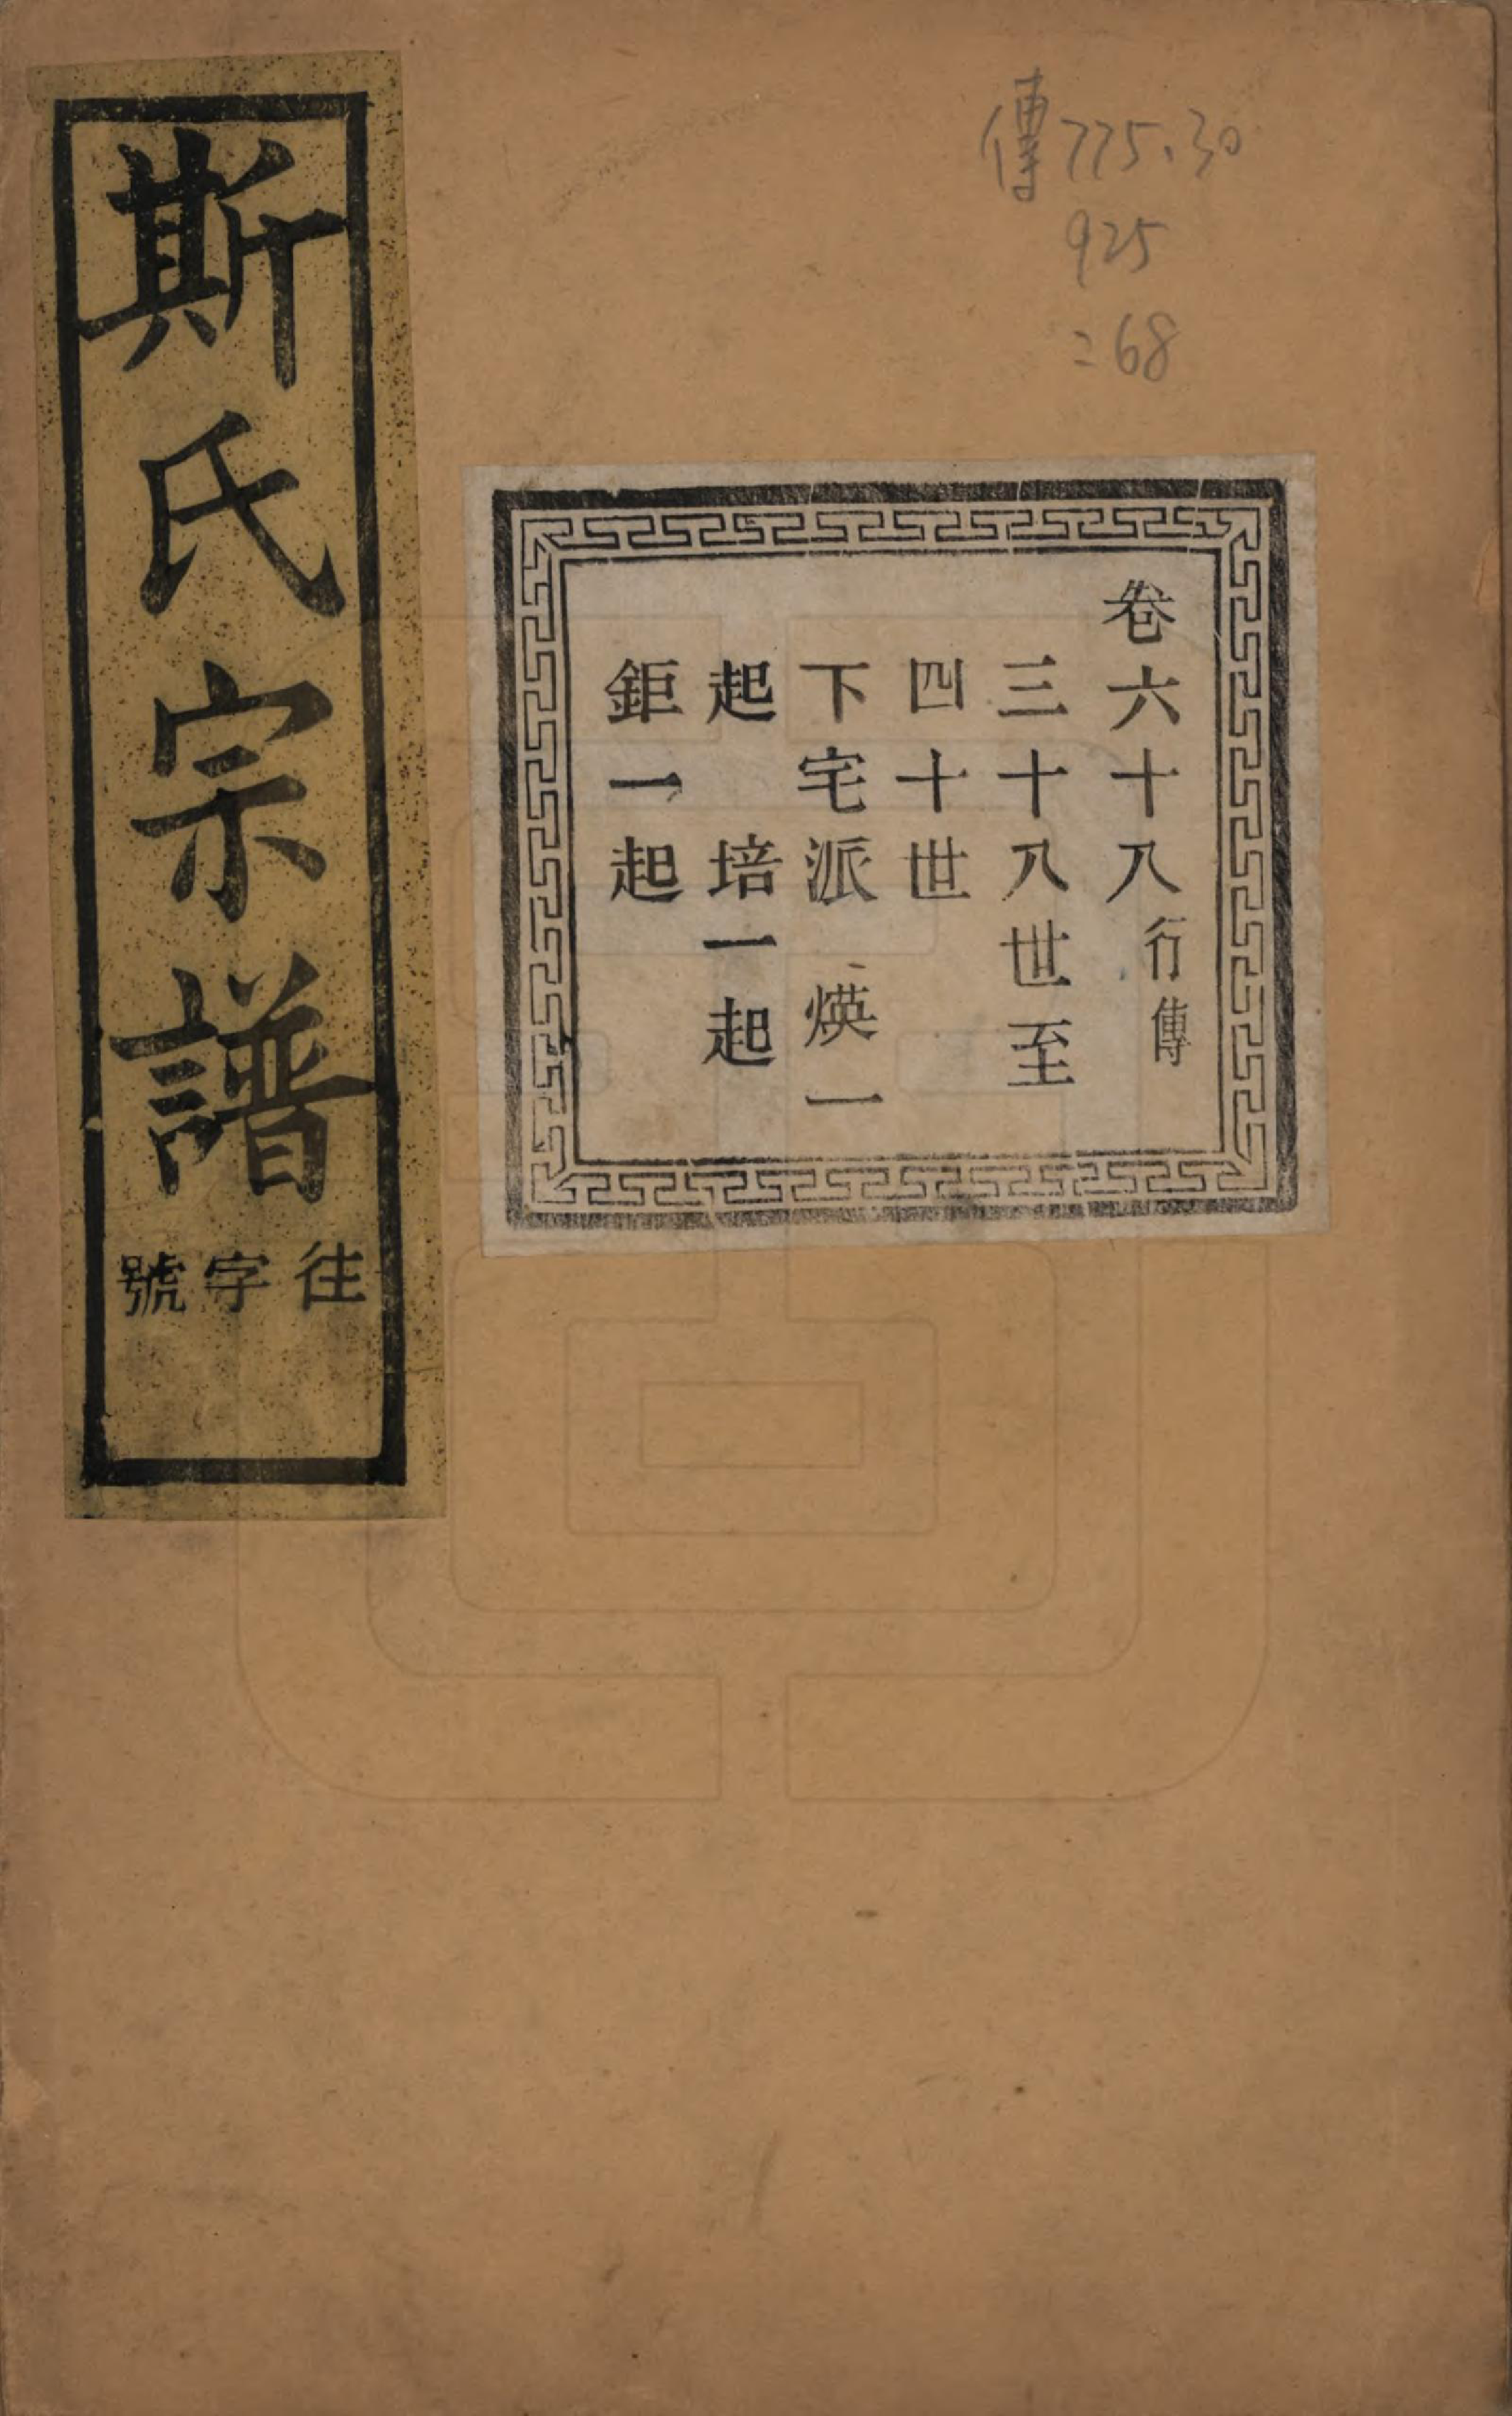 傳775.30
925
:68
卷六十八行傳
三十八世至
四十世
下宅派 煐一
起 培一起
鉅一起
斯氏宗譜
往字號